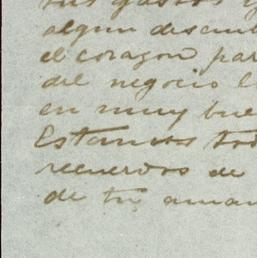 sus gastos y
algun descui
el corazon par
del negocio l
en muy bue
Estamos tod
recuerdos de
de tu aman